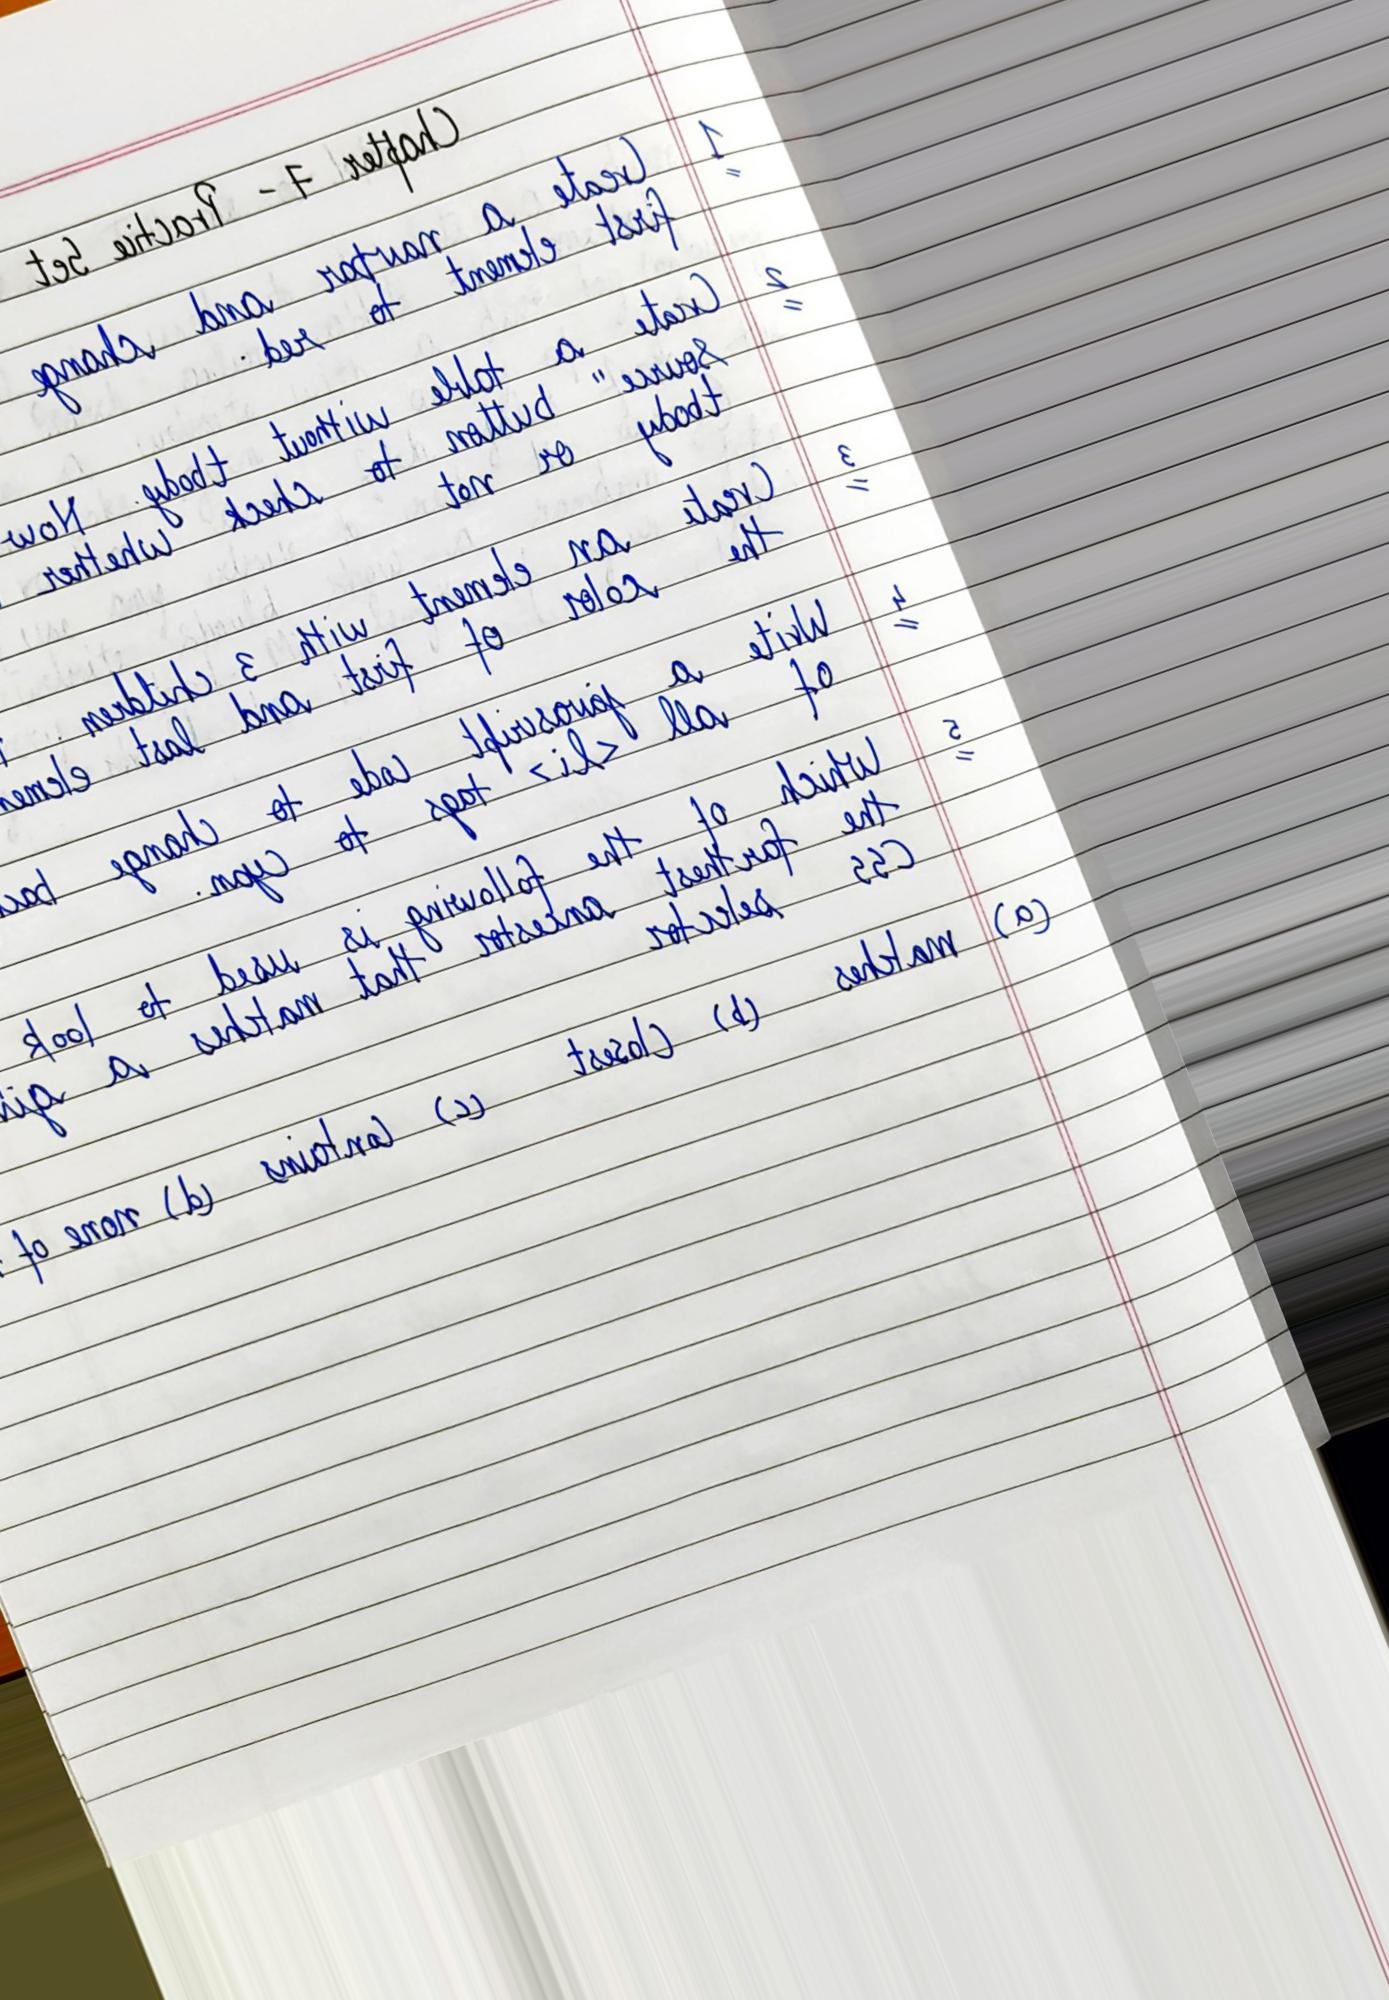 Chapter 7 - Practice Set
1 Create a navbar and change
first element to red.
2 Create a table without tbody. Now
source" button to check whether
tbody or not
3 Create an element with 3 children
the color of first and last
4 Write a javascript code to change
of all <li> tags to cyan.
5 Which of the following is used to look
the farthest ancestor that matches a
CSS selector
(a) matches (b) Closest (c) Contains (d) none of